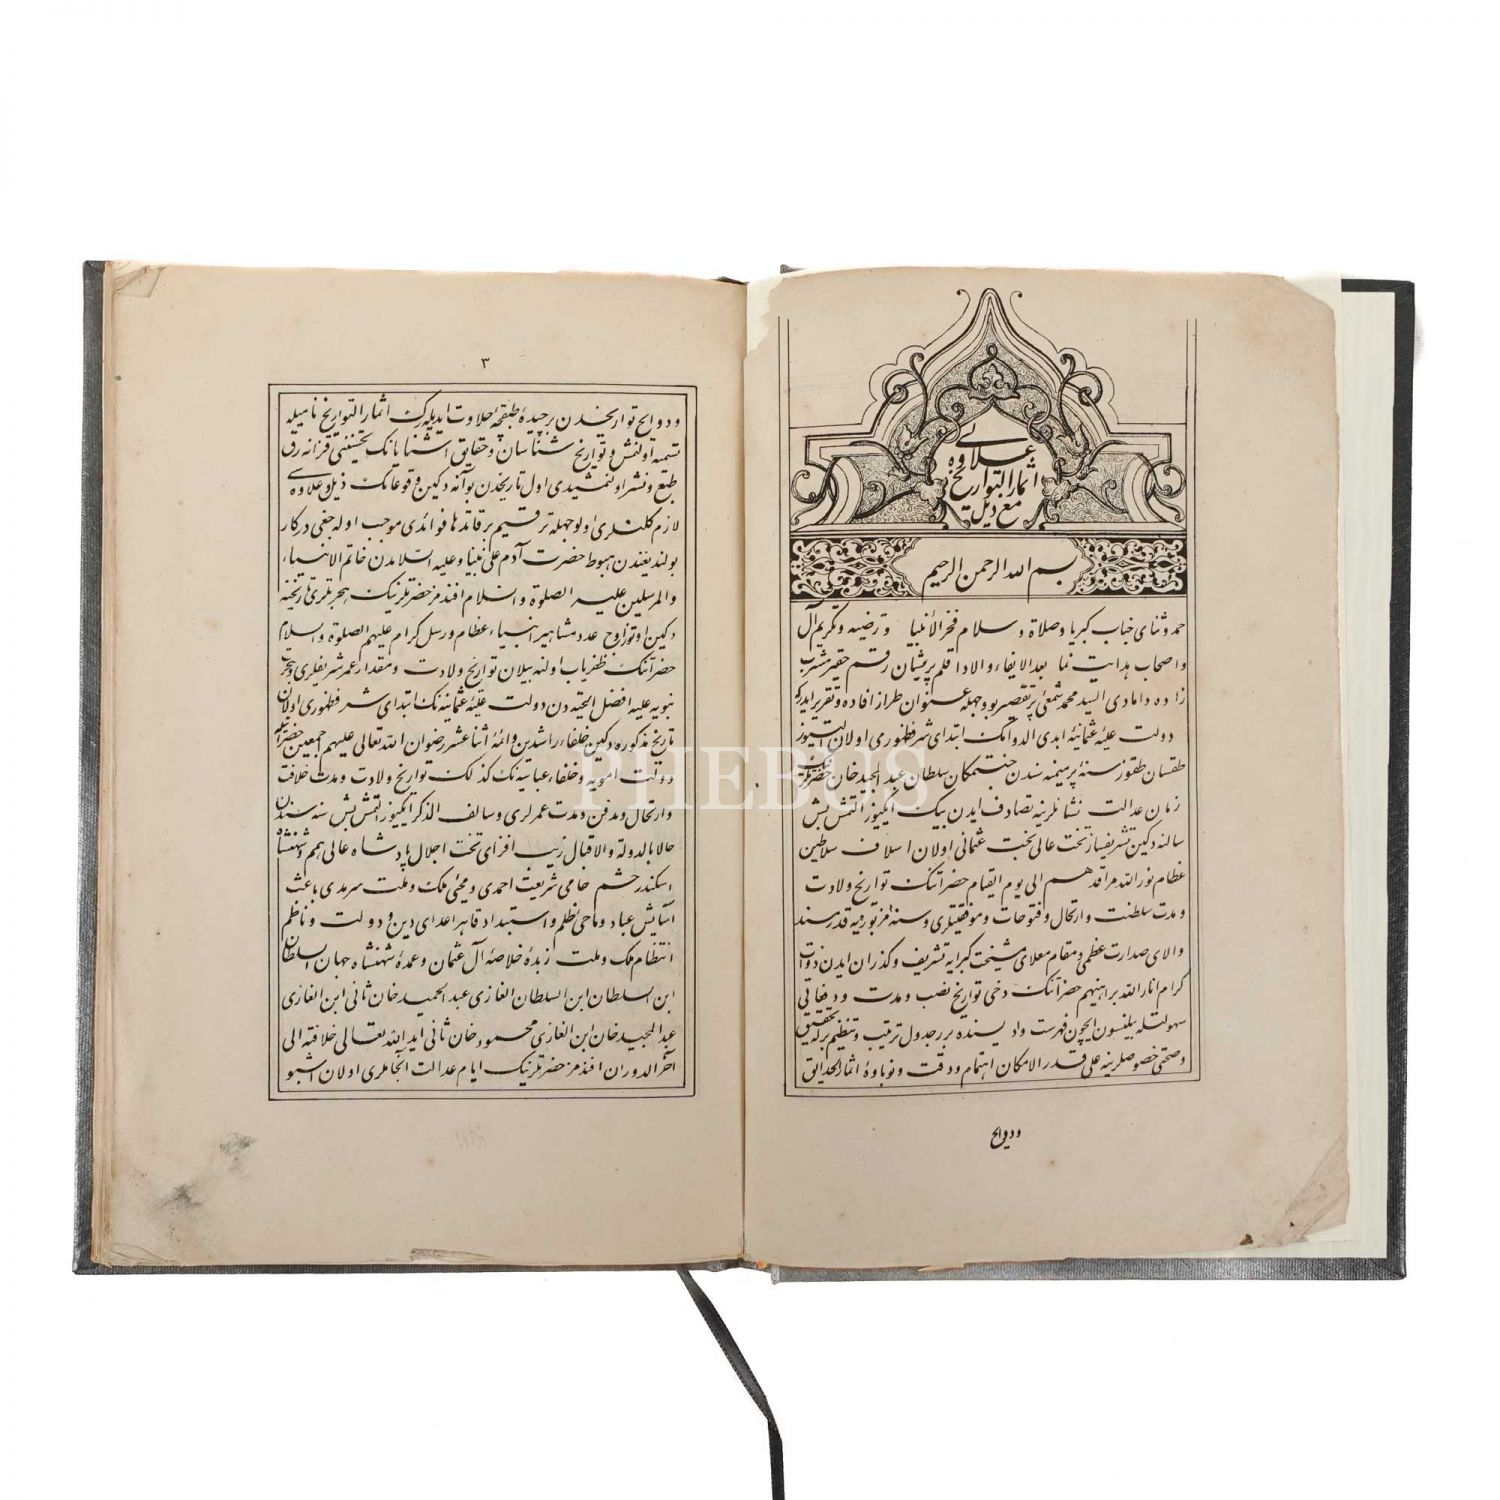 علاوه لی
اثمار التواریخ
مع ذیل
بسم الله الرحمن الرحیم
حمد وثنای جناب کبریا وصلاة وسلام فخر الانبیا وترضیه وتکریم آل
واصحاب هدایت نما بعد الایفاء والادا قلم پریشان رقم حقیر مشرب
زاده دامادی السید محمد شمعی پرتقصیر بو وجهله عنوان طراز افاده وتقریر ایدرکه
دولت علیهٔ عثمانیهٔ ابدی الدوامک ابتدای شرفظهوری اولان التیوز
طقسان طقوز سنهٔ سندن جنتمکان سلطان عبد المجید خان حضرتلرینک
زمان عدالت نشانلرینه تصادف ایدن بیک ایکیوز التمش بش
سالنه دکین تشریفساز تخت عالی بخت عثمانی اولان اسلاف سلاطین
عظام نور الله مراقدهم الی یوم القیام حضراتنک تواریخ ولادت
ومدت سلطنت وارتحال وفتوحات وموفقیتلری وسنهٔ مزبوریه قدر مسند
والای صدارت عظمی ومقام معلای مشیخت کبرایه تشریف وگذران ایدن ذوات
کرام انار الله براهینهم حضراتنک دخی تواریخ نصب ومدت ودفعاتی
سهولتله بیلنسون ایچون فهرست وادیسنده بر جدول ترتیب وتنظیم برله تحقیق
وصحتی خصوصلرینه علی قدر الامکان اهتمام ودقت ونوباوهٔ اثمار الحدایق
ودوایح
٣
ودوایح تواریخدن برچیدهٔ طبقچهٔ حلاوت ایدیله‌رک اثمار التواریخ نامیله
تسمیه اولنمش وتواریخ شناسان وحقایق آشنایانک تحسیننی قزانه‌رق
طبع ونشر اولنمشیدی اول تاریخدن بوآنه دکین وقوعاتک ذیل وعلاوه سی
لازم کلنلری اولوجهله ترقیم برقاندها فوائدی موجب اوله جغی درکار
بولندیغندن هبوط حضرت آدم علی نبینا وعلیه السلامدن خاتم الانبیاء
والمرسلین علیه الصلوة والسلام افندمز حضرتلرینک هجرتلری تاریخنه
دکین اوتوز اوچ عدد مشاهیر انبیاء عظام ورسل کرام علیهم الصلوة والسلام
حضراتنک ظفریاب اولنه بیلان تواریخ ولادت ومقدار عمر شریفلری وهجرت
نبویه علیه افضل التحیه دن دولت علیهٔ عثمانیه نک ابتدای شرفظهوری اولان
تاریخ مذکوره دکین خلفاء راشدین وائمهٔ اثنا عشر رضوان الله تعالی علیهم اجمعین حضراتیله
دولت امویه وخلفاء عباسیه نک کذلک تواریخ ولادت ومدت خلافت
وارتحال ومدفن ومدت عمرلری وسالف الذکر ایکیوز التمش بش سنه سندن
حالا بالدولة والاقبال زیب افزای تخت اجلال پادشاه عالی همم وشهنشاه
اسکندر حشم حامی شریعت احمدی ومحیی ملک وملت سرمدی باعث
آسایش عباد وماحی ظلم واستبداد قاهر اعدای دین ودولت وناظم
انتظام ملک وملت زبدهٔ خلاصهٔ آل عثمان وعمدهٔ شهنشاه جهان السلطان
ابن السلطان ابن السلطان الغازی عبد الحمید خان ثانی ابن الغازی
عبد المجید خان ابن الغازی محمود خان ثانی اید الله تعالی خلافته الی
آخر الدوران افندمز حضرتلرینک ایام عدالت انجاملری اولان اشبو
PHEBUS